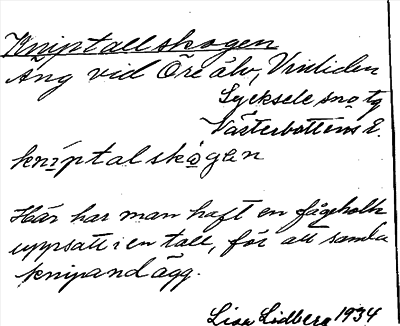 Kniptallskogen
Äng vid Öre älv, Vinliden
Lycksele sn o tg
Västerbottens l.
kníptalskogen
Här har man haft en fågelholk
uppsatt i en tall, för att samla
knipandägg.
Lisa Lidberg 1934